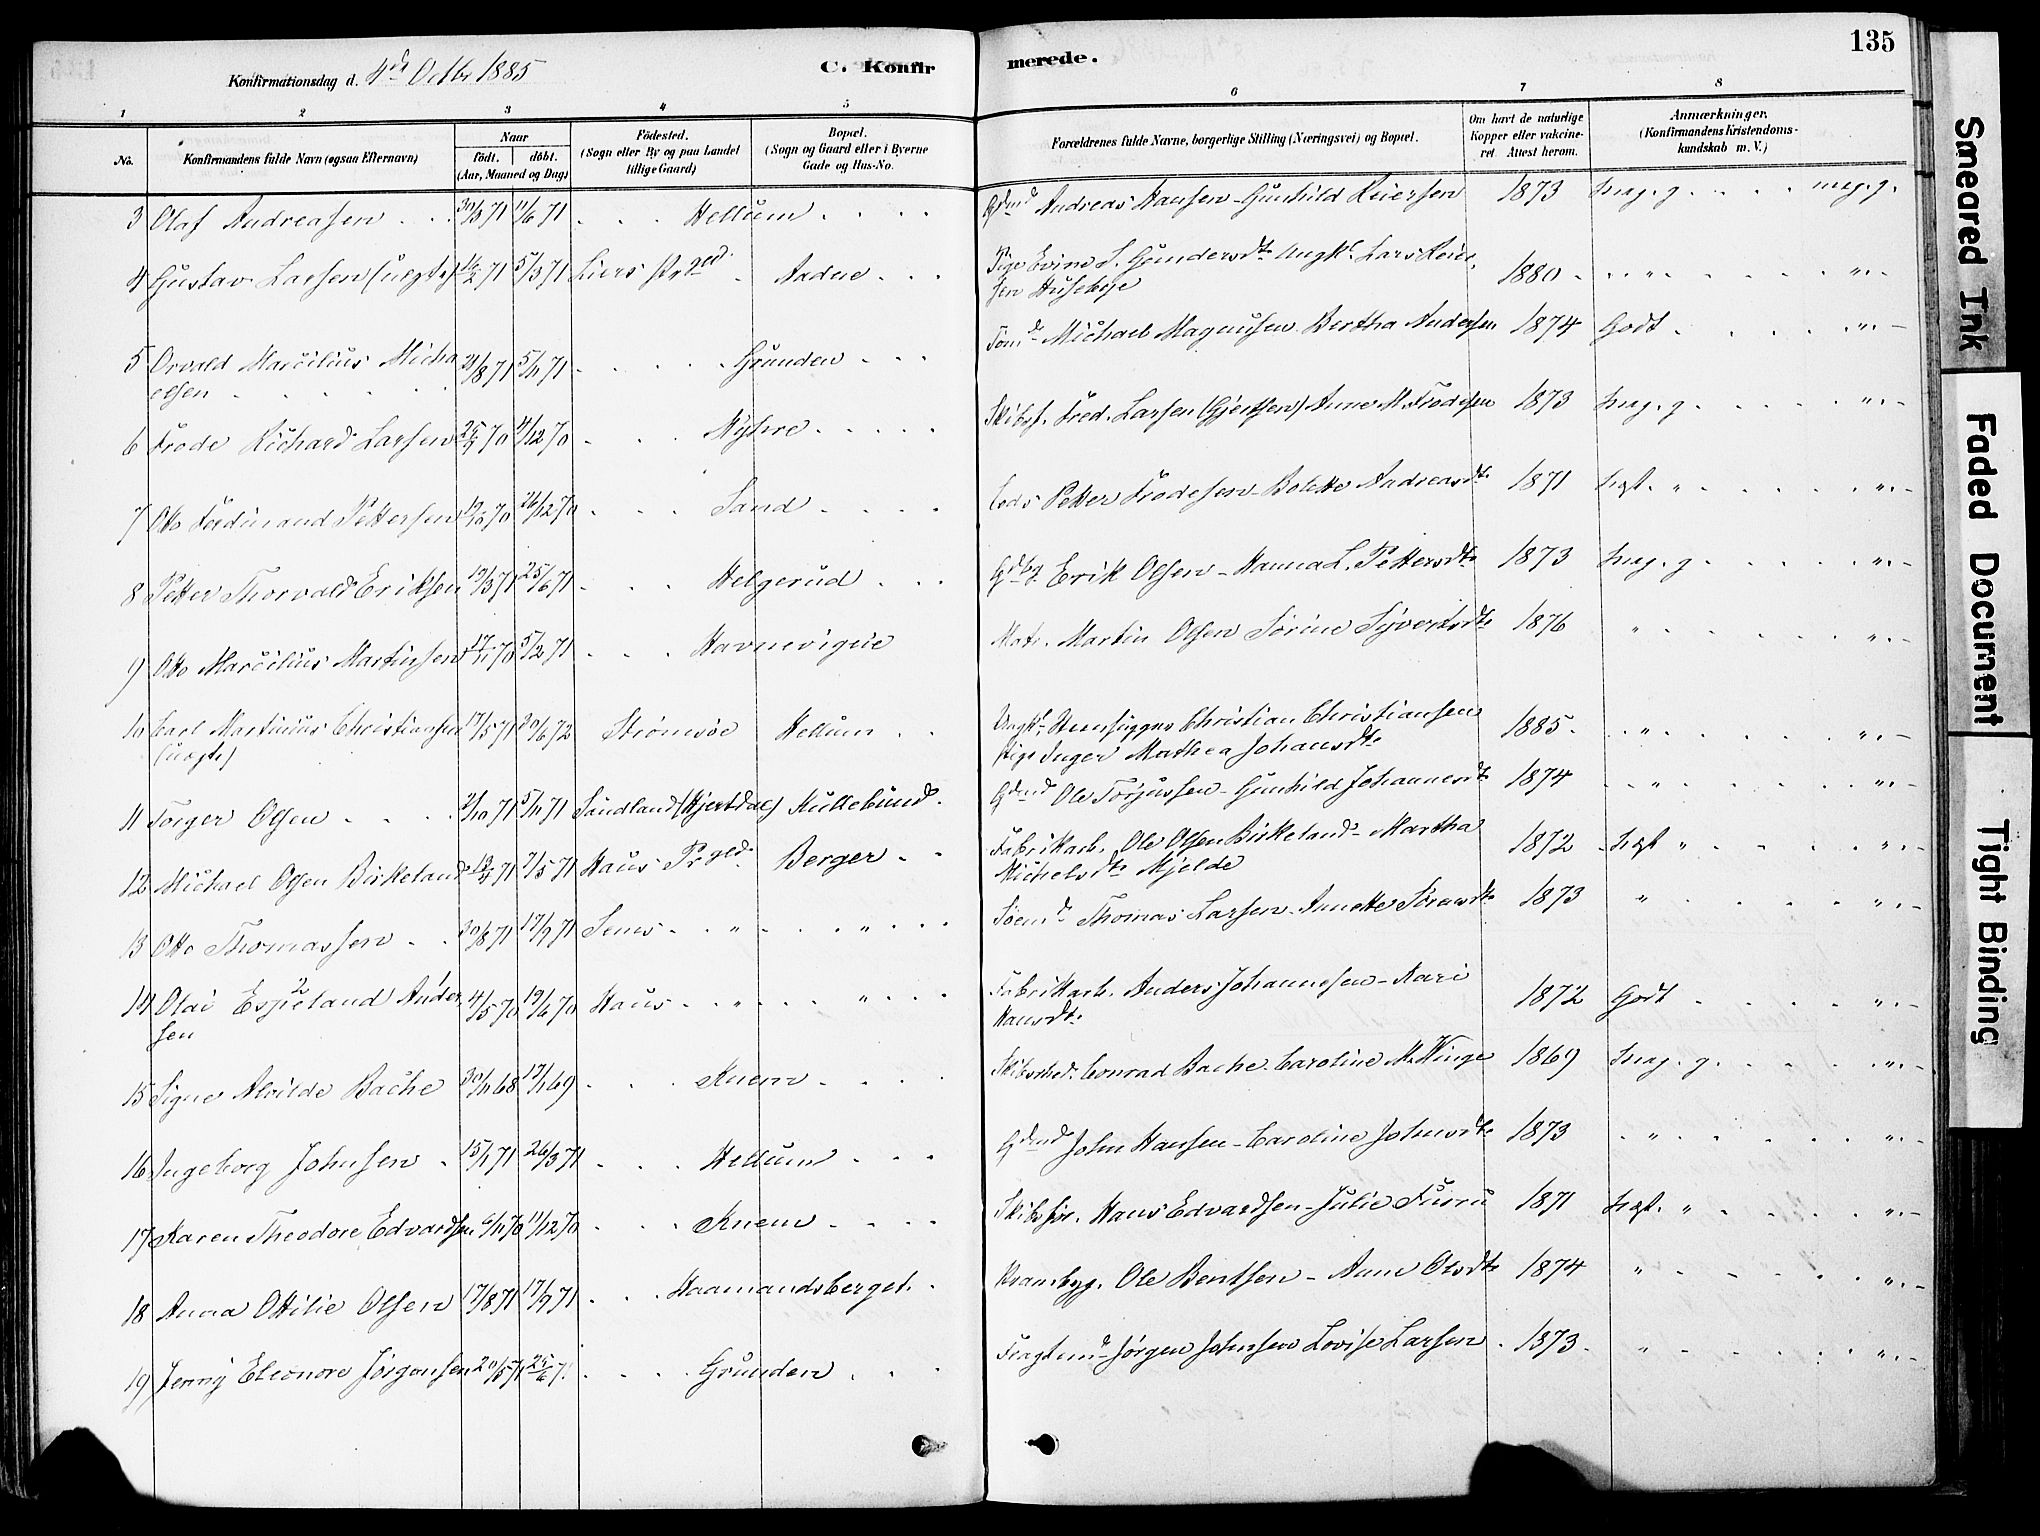 135
Konfirmationsdag d. 4de Octbr 1885
C. Konfir merede.
1 2 3 4 5 6 7 8
No.
Konfirmandens fulde Navn (ogsaa Efternavn)
Naar
født. døbt.
(Aar, Maaned og Dag)
Fødested.
(Sogn eller By og paa Landet
tillige Gaard)
Bopæl.
(Sogn og Gaard eller i Byerne
Gade og Hus-No.
Forældrenes fulde Navne, borgerlige Stilling (Næringsvei) og Bopæl.
Om havt de naturlige
Kopper eller vakcine-
ret. Attest herom.
Anmærkninger.
(Konfirmandens Kristendoms-
kundskab m. V.)
3 Olaf Andreasen 11/6 71 Hellum Gdmd Andreas Hansen - Gunhild Reiersen 1873 meg. g.
4 Gustav Larsen (uegte) 16/2 71 5/3 71 Liers Prgjd. Pige L. Gundersdtr Ungk. Lars Reier
sen Husebye 1880 " " "
5 Orvald Marcilius Micha
elsen 21/8 71 5/11 71 Grunden Michael Magnusen - Bertha Andersen 1874 Godt "
6 Frode Richard Larsen 25/9 70 11/12 70 Myhre Skibsf. Fred. Larsen (Gjertsen) Anne M. Frodesen 1873 "
7 Otto Ferdinand Pettersen 19/10 70 26/12 70 Sand Lods Petter Frodesen - Bolette Andreasdtr 1871 "
8 Petter Thorvald Eriksen 19/3 71 25/6 71 Helgerud Erik Olsen - Hanna L. Pettersdtr 1873 "
9 Otto Marcilius Martinsen 17/11 70 5/2 71 Havnevigne Matr. Martin Olsen Sørine Syvertsdtr 1876 " "
10 Carl Martinius Christiansen
(uegte) 17/5 71 30/6 72 Strømsøe Hellum Ungk. Stenhugger Christian Christiansen
Pige Inger Mathea Johansdtr 1885 " "
11 Torger Olsen 21/10 71 5/11 71 Sandland (Hjertdal) Kullebund Gdmd Ole Torjussen - Gunhild Johannesdtr 1874 " "
12 Michael Olsen Birkeland 7/5 71 Haus Prgjd. Berger Fabrikarb. Ole Olsen Birkeland - Martha
Michelsdtr Mjelde 1872 "
13 Otto Thomassen 30/8 71 17/9 71 Sems " " Søemd Thomas Larsen - Annette Sørensdtr 1873 " "
14 Olai Espeland Ander
sen 4/5 70 19/6 70 Haus " " Fabrikarb. Anders Johannesen - Kari
Hansdtr 1872 Godt "
15 Signe Alvilde Bache 30/11 68 17/1 69 Knem Skibsrhed. Conrad Bache - Caroline M. Winge 1869 "
16 Ingeborg Johnsen 15/1 71 26/3 71 Hellum Gdmd John Hansen - Caroline Johnsdtr 1873 " "
17 Karen Theodore Edvardsen 6/11 70 11/12 70 Knem Skibsfør. Hans Edvardsen - Julie Furru 1871 "
18 Anna Ottilie Olsen 17/8 71 17/9 71 Haamandsberget Ole Bentsen - Anne Olsdtr 1874 " "
19 Jenny Eleonore Jørgensen 20/5 71 25/6 71 Grunden Fragtmd Jørgen Johnsen Lovise Larsen 1873 " "
Smeared Ink
Faded Document
Tight Binding